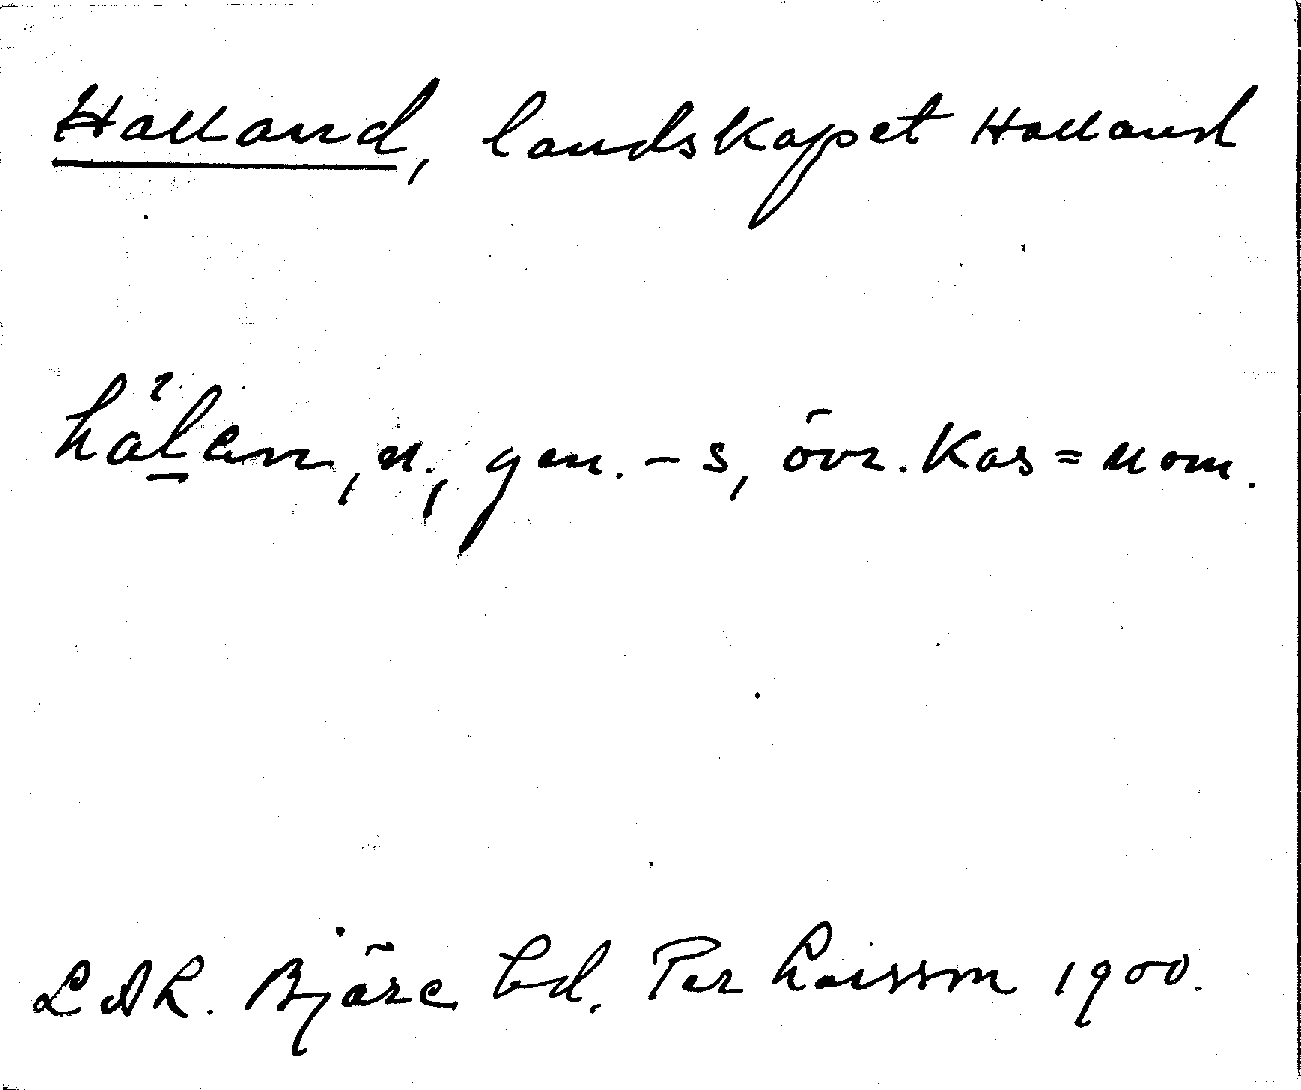 Halland, landskapet Halland
hal̲an, n., gen. -s, övr. Kas = nom.
LAL. Bjäre hd. Per Larsson 1900.